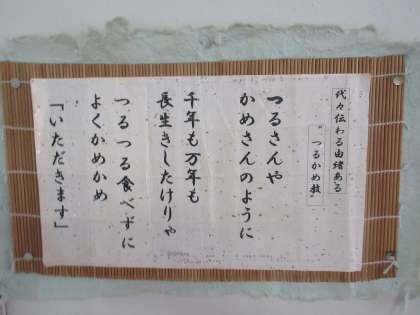 代々伝わる由緒ある
"つるかめ教"
つるさんや
かめさんのように
千年も万年も
長生きしたけりゃ
つるつる食べずに
よくかめかめ
「いただきます」